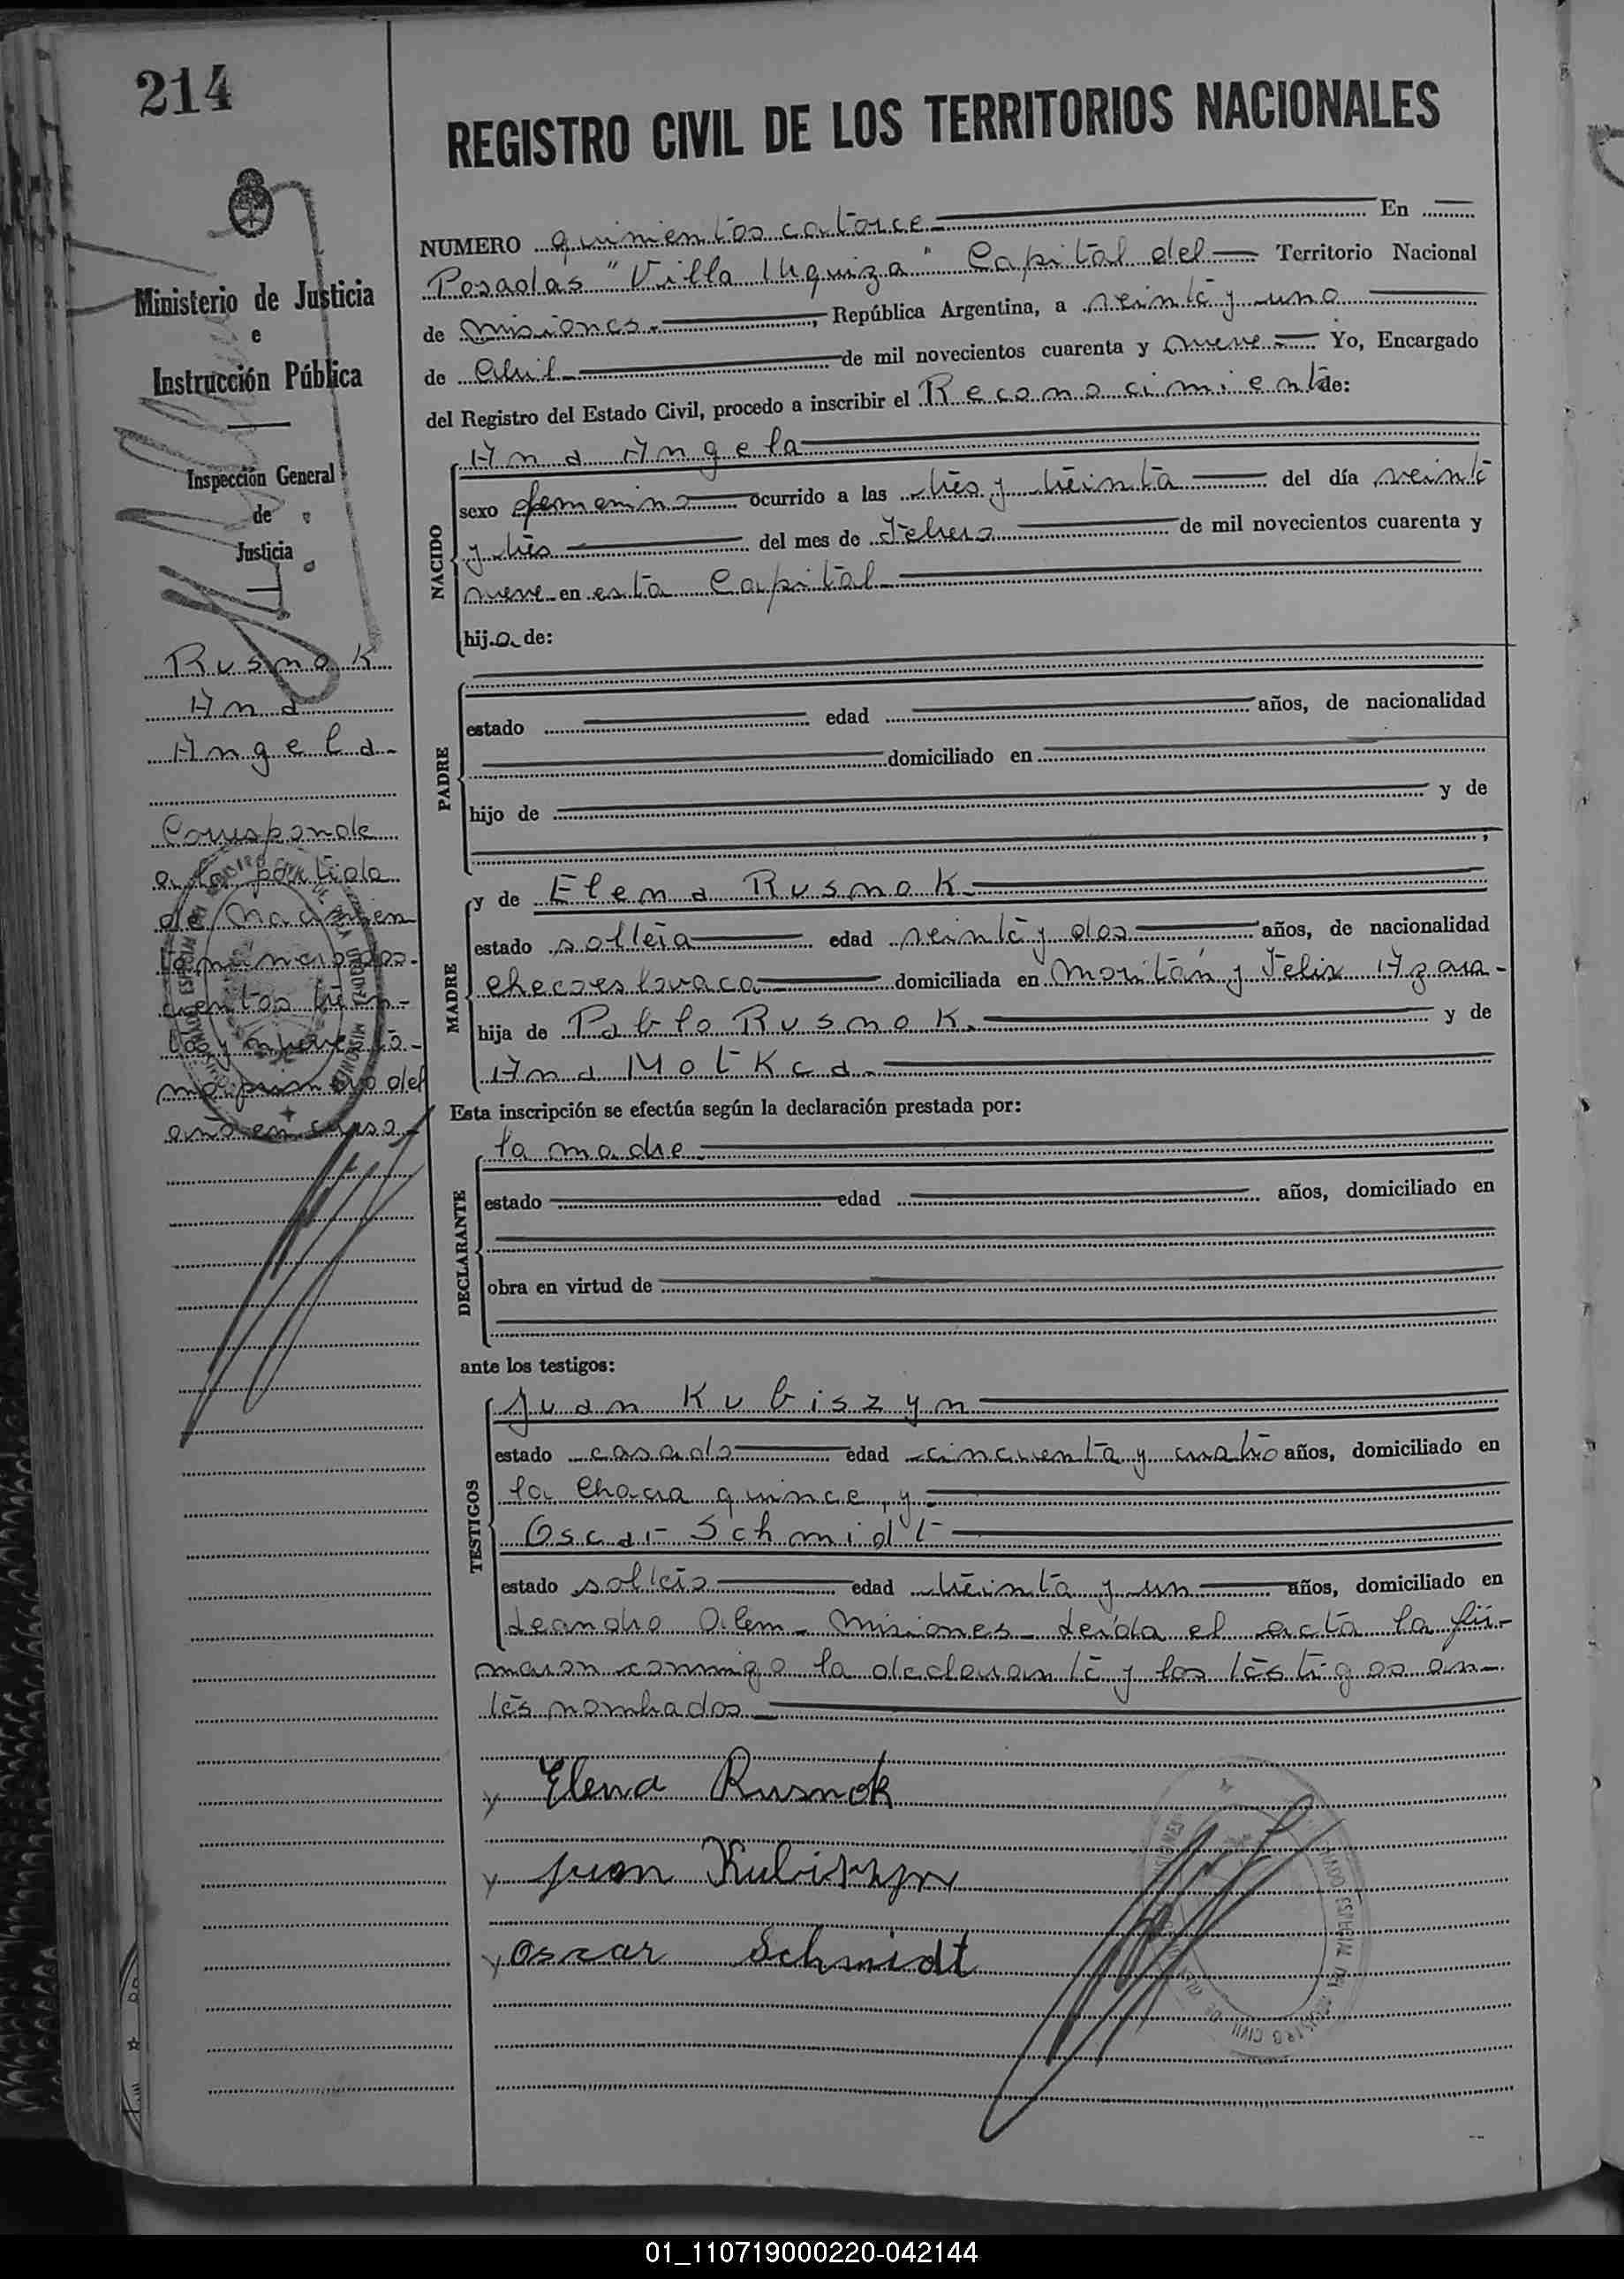 214
REGISTRO CIVIL DE LOS TERRITORIOS NACIONALES
Ministerio de Justicia
e
Instrucción Pública
Inspección General
de
Justicia
Rusnok
Ana
Angela-
Corresponde
a la partida
de nacimien
to número dos-
cientos trein-
ta y nueve to-
mo primero del
año en curso-
NUMERO quinientos catorce En
Posadas "Villa Urquiza" Capital del Territorio Nacional
de Misiones. , República Argentina, a veinte y uno
de Abril de mil novecientos cuarenta y nueve Yo, Encargado
del Registro del Estado Civil, procedo a inscribir el Reconocimiento de:
NACIDO
Ana Angela
sexo femenino ocurrido a las tres y treinta del día veinte
y tres del mes de Febrero de mil novecientos cuarenta y
nueve en esta Capital
hija de:
PADRE
estado edad años, de nacionalidad
domiciliado en
hijo de y de
,
MADRE
y de Elena Rusnok
estado soltera edad veinte y dos años, de nacionalidad
checoeslovaca domiciliada en y Felix Azara-
hija de Pablo Rusnok. y de
Ana Motkca.
Esta inscripción se efectúa según la declaración prestada por:
DECLARANTE
la madre
estado edad años, domiciliado en
obra en virtud de
ante los testigos:
TESTIGOS
Juan Kubiszyn
estado casado edad cincuenta y cuatro años, domiciliado en
la Chacra quince, y
Oscar Schmidt
estado soltero edad treinta y un años, domiciliado en
Leandro Alem- Misiones- Leída el acta la fir-
maron conmigo la declarante y los testigos an-
tes nombrados
Elena Rusnok
Juan Kubiszyn
Oscar Schmidt
01_110719000220-042144